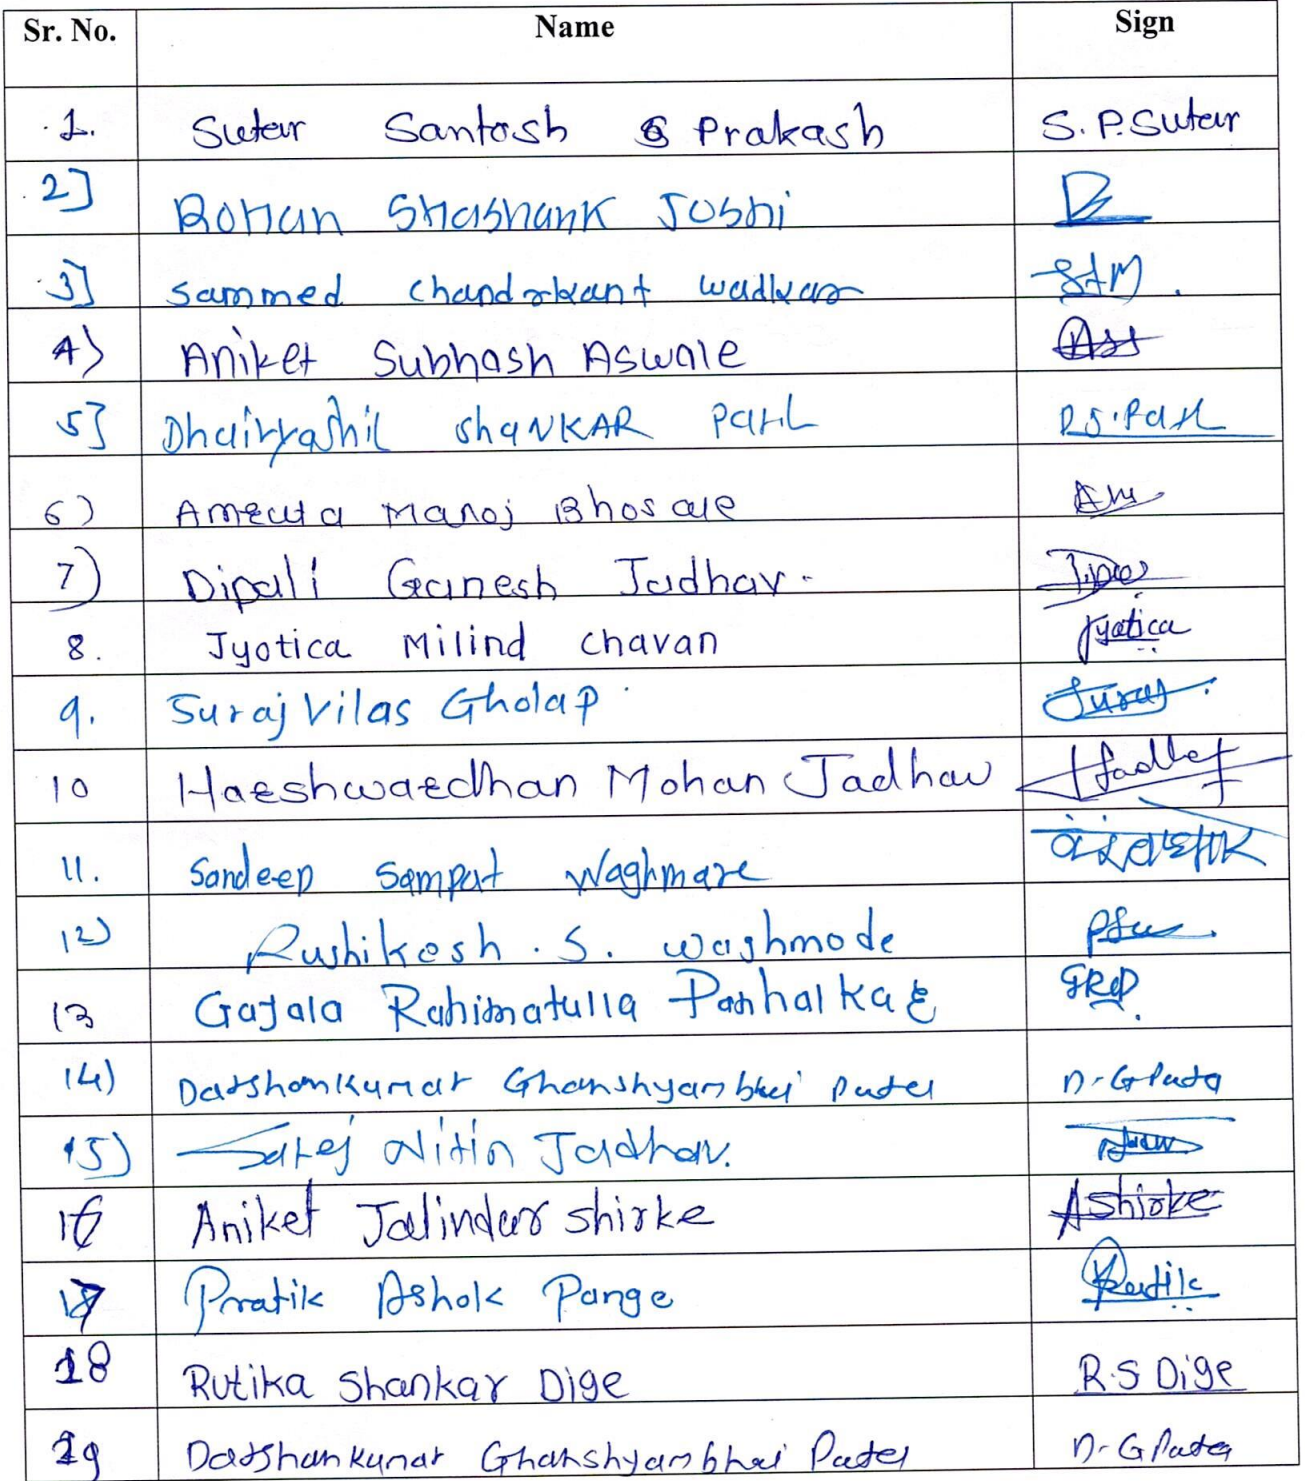 Sr. No. Name Sign
1. Sutar Santosh Prakash S. P. Sutar
2] Rohan Shashank Joshi
3] Sammed Chandrkant Wadkar
4) Aniket Subhash Aswale
5] Dhairyashil ShaNKAR Patil
6) Amruta Manoj Bhosale
7) Dipali Ganesh Jadhav.
8. Jyotica Milind Chavan Jyotica
9. Suraj Vilas Gholap Suraj
10 Harshwardhan Mohan Jadhav
11. Sandeep Sampat Waghmare
12) Rushikesh . S. Waghmode
13 Gajala Rahimatulla Panhalkar GRP.
14) Darshankumar Ghanshyambhai Patel D.G Patel
15) Nitin Jadhav.
16 Aniket Jalindar Shirke AShirke
17 Pratik Ashok Pange Pratik
18 Rutika Shankar Dige R.S Dige
19 Darshankumar Ghanshyambhai Patel D.G Patel